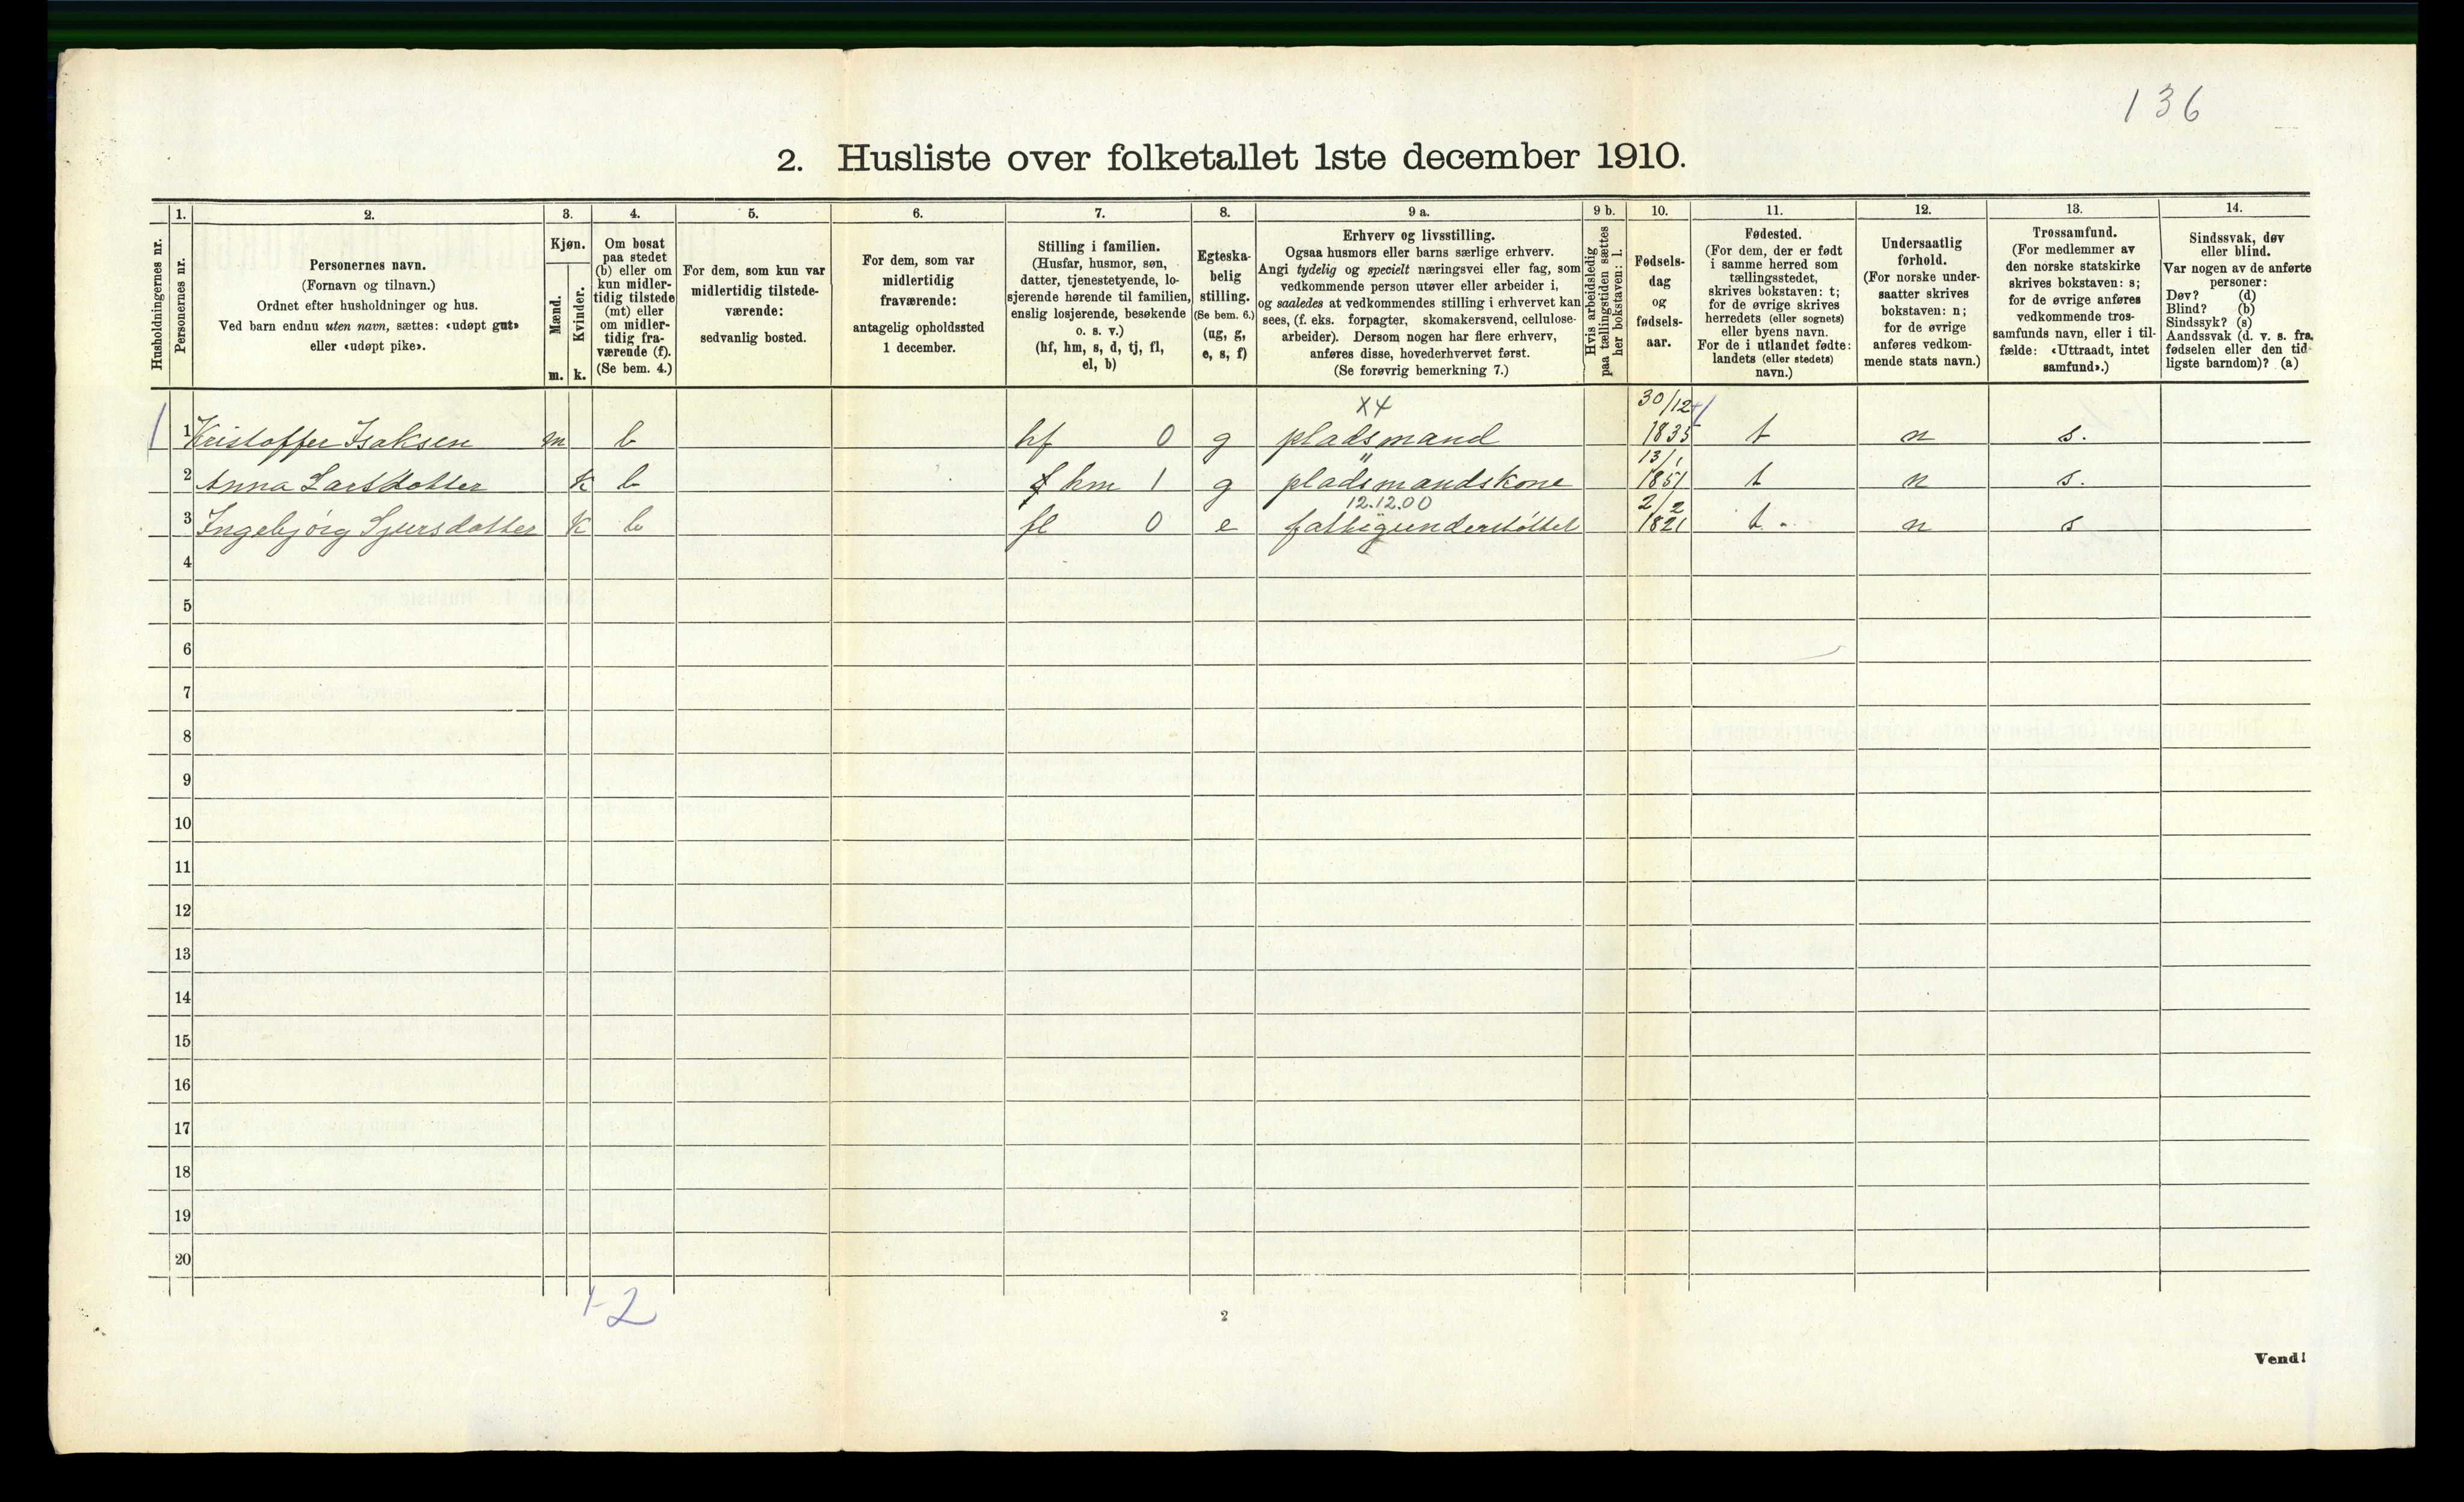 136
2. Husliste over folketallet 1ste december 1910.
Husholdningernes nr.
1.
Personernes nr.
2.
Personernes navn.
(Fornavn og tilnavn.)
Ordnet efter husholdninger og hus.
Ved barn endnu uten navn, sættes: «udøpt gut»
eller «udøpt pike».
3.
Kjøn.
Mænd.
Kvinder.
m. k.
4.
Om bosat
paa stedet
(b) eller om
kun midler-
tidig tilstede
(mt) eller
om midler-
tidig fra-
værende (f).
(Se bem. 4.)
5.
For dem, som kun var
midlertidig tilstede-
værende:
sedvanlig bosted.
6.
For dem, som var
midlertidig
fraværende:
antagelig opholdssted
1 december.
7.
Stilling i familien.
(Husfar, husmor, søn,
datter, tjenestetyende, lo-
sjerende hørende til familien,
enslig losjerende, besøkende
o. s. v.)
(hf, hm, s, d, tj, fl,
el, b)
8.
Egteska-
belig
stilling.
(Se bem. 6.)
(ug, g,
e, s, f)
9 a.
Erhverv og livsstilling.
Ogsaa husmors eller barns særlige erhverv.
Angi tydelig og specielt næringsvei eller fag, som
vedkommende person utøver eller arbeider i,
og saaledes at vedkommendes stilling i erhvervet kan
sees, (f. eks. forpagter, skomakersvend, cellulose-
arbeider). Dersom nogen har flere erhverv,
anføres disse, hovederhvervet først.
(Se forøvrig bemerkning 7.)
9 b.
Hvis arbeidsledig
paa tællingstiden sættes
her bokstaven: l.
10.
Fødsels-
dag
og
fødsels-
aar.
11.
Fødested.
(For dem, der er født
i samme herred som
tællingsstedet,
skrives bokstaven: t;
for de øvrige skrives
herredets (eller sognets)
eller byens navn.
For de i utlandet fødte:
landets (eller stedets)
navn.)
12.
Undersaatlig
forhold.
(For norske under-
saatter skrives
bokstaven: n;
for de øvrige
anføres vedkom-
mende stats navn.)
13.
Trossamfund.
(For medlemmer av
den norske statskirke
skrives bokstaven: s;
for de øvrige anføres
vedkommende tros-
samfunds navn, eller i til-
fælde: «Uttraadt, intet
samfund».)
14.
Sindssvak, døv
eller blind.
Var nogen av de anførte
personer:
Døv? (d)
Blind? (b)
Sindssyk? (s)
Aandssvak (d. v. s. fra
fødselen eller den tid-
ligste barndom)? (a)
1 1 Kristoffer Isaksen m b hf 0 g X4 pladsmand 30/12 1835 t n s.
2 Anna Larsdotter k b hm 1 g " pladsmandskone 13/1 1851 t n s.
3 Ingebjørg Sjursdatter k b fl 0 e 12.12.00 fattigunderstøttet 2/2 1821 t n s
4
5
6
7
8
9
10
11
12
13
14
15
16
17
18
19
20
1-2
2
Vend!